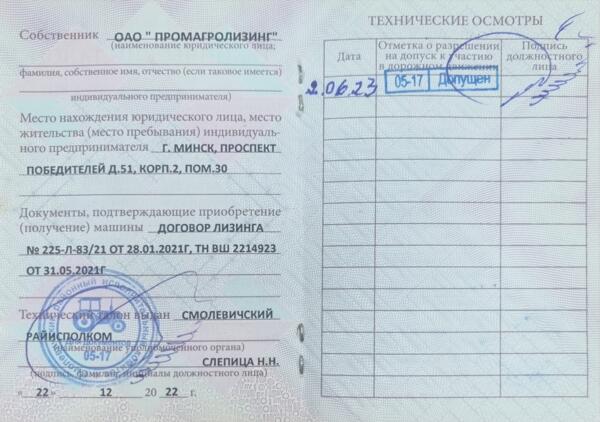 Собственник ОАО " ПРОМАГРОЛИЗИНГ"
(наименование юридического лица;
фамилия, собственное имя, отчество (если таковое имеется)
индивидуального предпринимателя)
Место нахождения юридического лица, место
жительства (место пребывания) индивидуаль-
ного предпринимателя Г. МИНСК, ПРОСПЕКТ
ПОБЕДИТЕЛЕЙ Д.51, КОРП.2, ПОМ.30
Документы, подтверждающие приобретение
(получение) машины ДОГОВОР ЛИЗИНГА
№ 225-Л-83/21 ОТ 28.01.2021Г, ТН ВШ 2214923
ОТ 31.05.2021Г
Технический талон выдан СМОЛЕВИЧСКИЙ
РАЙИСПОЛКОМ
(наименование уполномоченного органа)
СЛЕПИЦА Н.Н.
(подпись, фамилия, инициалы должностного лица)
" 22 " 12 20 22 г.
05-17
ТЕХНИЧЕСКИЕ ОСМОТРЫ
Дата
Отметка о разрешении
на допуск к участию
в дорожном движении
Подпись
должностного
лица
2.06.23
05-17 Допущен